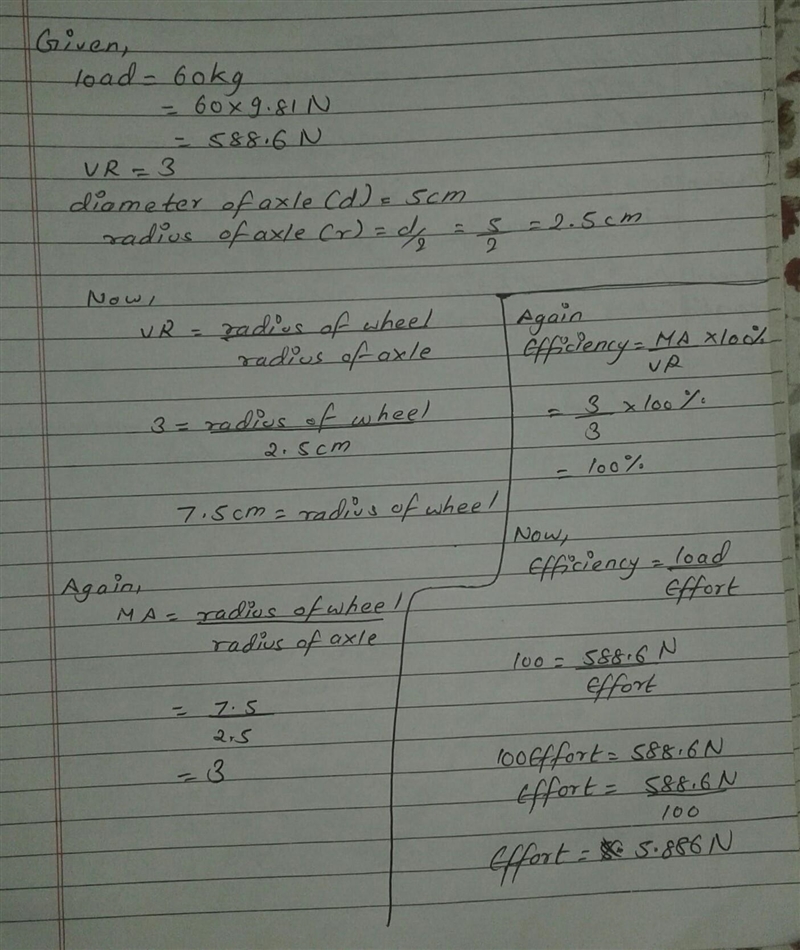 Given,
load = 60kg
= 60×9.81N
= 588.6N
VR = 3
diameter of axle (d) = 5cm
radius of axle (r) = d/2 = 5/2 = 2.5cm
Now,
VR = radius of wheel
radius of axle
3 = radius of wheel
2.5cm
7.5cm = radius of wheel
Again,
MA = radius of wheel
radius of axle
= 7.5
2.5
= 3
Again
Efficiency = MA ×100%
VR
= 3 ×100%
3
= 100%
Now,
Efficiency = load
Effort
100 = 588.6N
Effort
100Effort = 588.6N
Effort = 588.6N
100
Effort = 5.886N